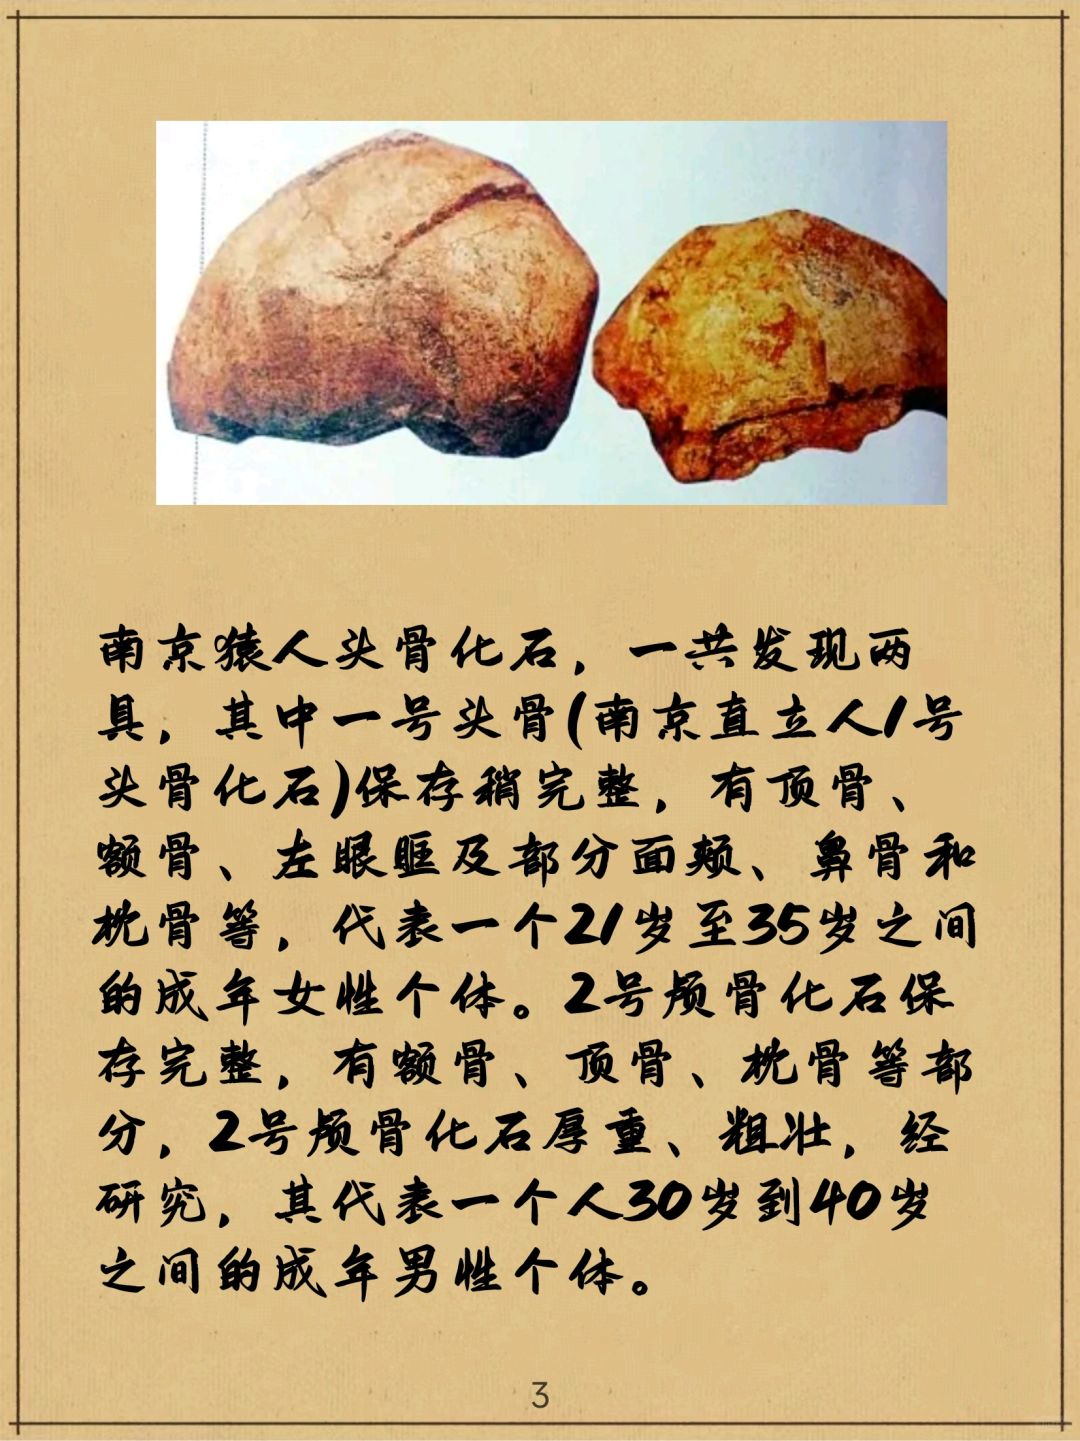 南京猿人头骨化石，一共发现两
具，其中一号头骨(南京直立人1号
头骨化石)保存稍完整，有顶骨、
额骨、左眼眶及部分面颊、鼻骨和
枕骨等，代表一个21岁至35岁之间
的成年女性个体。2号颅骨化石保
存完整，有额骨、顶骨、枕骨等部
分，2号颅骨化石厚重、粗壮，经
研究，其代表一个人30岁到40岁
之间的成年男性个体。
3